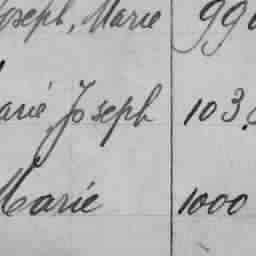 Joseph, Marie 99
Marie Joseph 103
Marie 1000